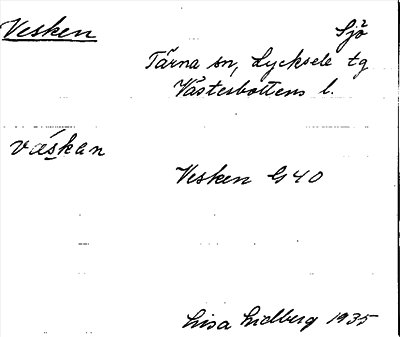 Vesken Sjö
Tärna sn, Lycksele tg
Västerbottens l.
väskan
Vesken G40
Lisa Lidberg 1935